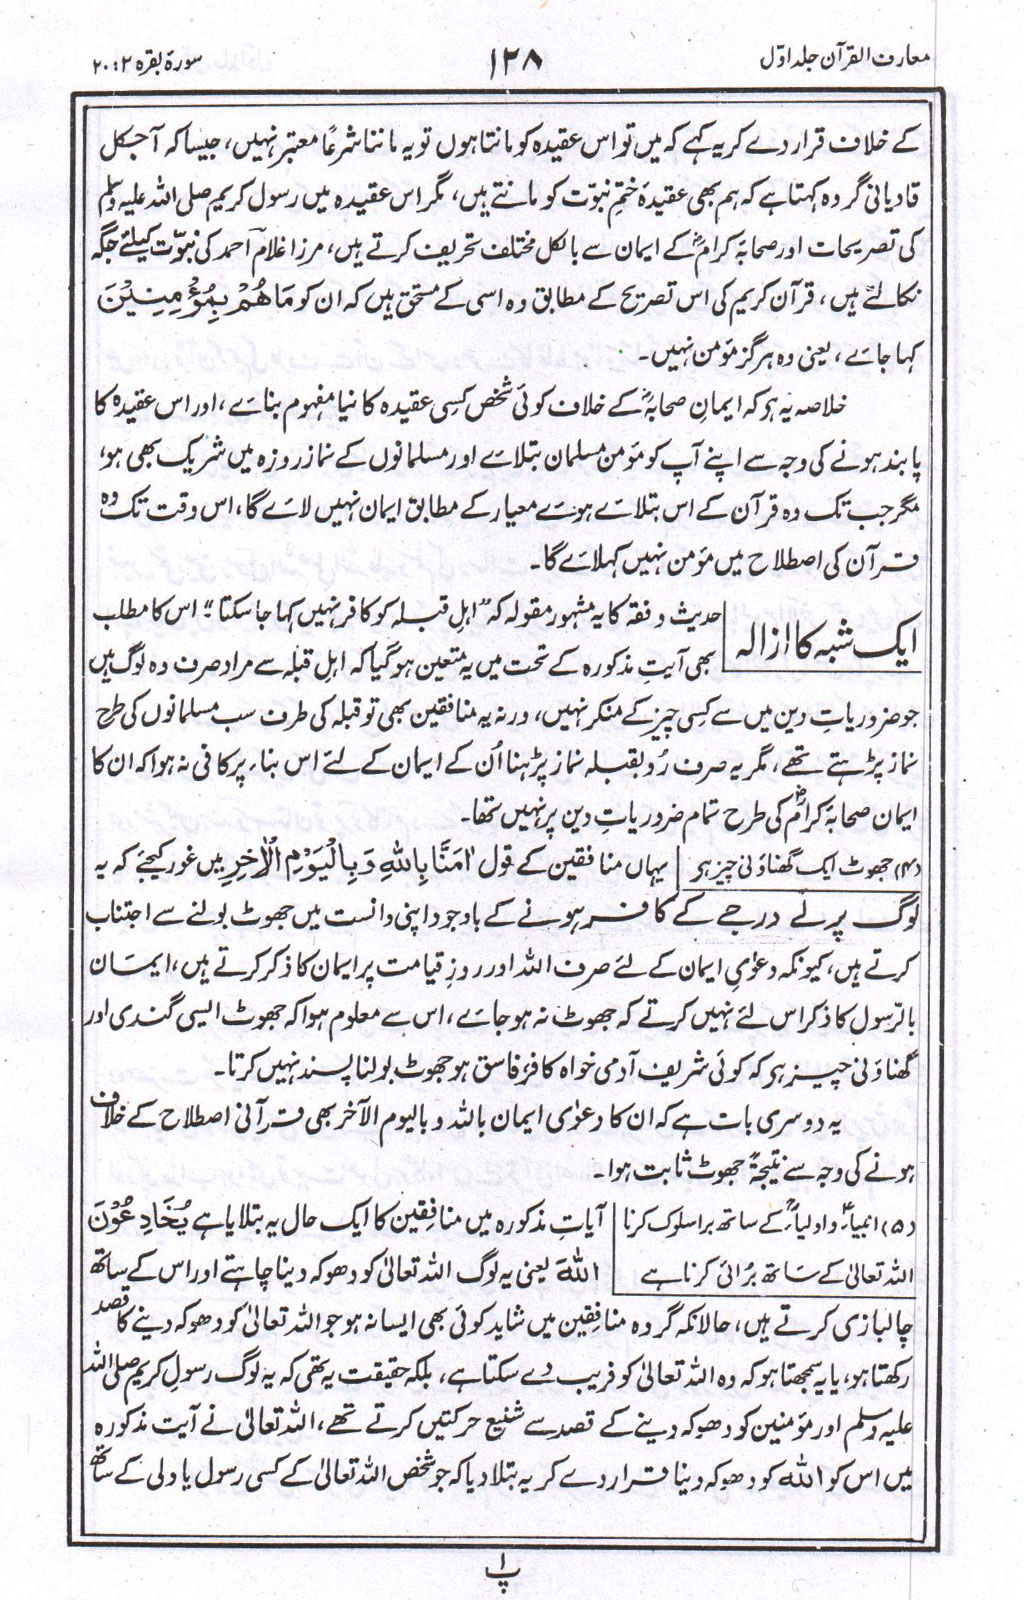 معارف القرآن جلد اوّل
۱۲۸
سورۂ بقرہ ۲ : ۲۰
کے خلاف قرار دے کر یہ کہے کہ میں تو اس عقیدہ کو مانتا ہوں تو یہ ماننا شرعًا معتبر نہیں، جیسا کہ آجکل
قادیانی گروہ کہتا ہے کہ ہم بھی عقیدۂ ختمِ نبوّت کو مانتے ہیں، مگر اس عقیدہ میں رسول کریم صلی اللہ علیہ وسلم
کی تصریحات اور صحابۂ کرامؓ کے ایمان سے بالکل مختلف تحریف کرتے ہیں، مرزا غلام احمد کی نبوّت کیلئے جگہ
نکالتے ہیں، قرآن کریم کی اس تصریح کے مطابق وہ اسی کے مستحق ہیں کہ ان کو مَا هُمْ بِمُؤْمِنِيْنَ
کہا جائے، یعنی وہ ہرگز مؤمن نہیں۔
خلاصہ یہ ہو کہ ایمانِ صحابہؓ کے خلاف کوئی شخص کسی عقیدہ کا نیا مفہوم بنائے، اور اس عقیدہ کا
پابند ہونے کی وجہ سے اپنے آپ کو مؤمن مسلمان بتلائے اور مسلمانوں کے نماز روزہ میں شریک بھی ہو،
مگر جب تک وہ قرآن کے اس بتلائے ہوئے معیار کے مطابق ایمان نہیں لائے گا، اس وقت تک وہ
قرآن کی اصطلاح میں مؤمن نہیں کہلائے گا۔
ایک شبہ کا ازالہ
حدیث و فقہ کا یہ مشہور مقولہ کہ "اہلِ قبلہ کو کافر نہیں کہا جا سکتا" اس کا مطلب
بھی آیتِ مذکورہ کے تحت میں یہ متعین ہو گیا کہ اہل قبلہ سے مراد صرف وہ لوگ ہیں
جو ضروریاتِ دین میں سے کسی چیز کے منکر نہیں، ورنہ یہ منافقین بھی تو قبلہ کی طرف سب مسلمانوں کی طرح
نماز پڑہتے تھے، مگر یہ صرف رُو بقبلہ نماز پڑہنا اُن کے ایمان کے لئے اس بناء پر کافی نہ ہوا کہ ان کا
ایمان صحابۂ کرامؓ کی طرح تمام ضروریاتِ دین پر نہیں تھا۔
(۴) جھوٹ ایک گھناؤنی چیز ہو
یہاں منافقین کے قول اٰمَنَّا بِاللّٰهِ وَبِالْيَوْمِ الْاٰخِرِ میں غور کیجئے کہ یہ
لوگ پرلے درجے کے کافر ہونے کے باوجود اپنی دانست میں جھوٹ بولنے سے اجتناب
کرتے ہیں، کیونکہ دعوٰیِ ایمان کے لئے صرف اللہ اور روزِ قیامت پر ایمان کا ذکر کرتے ہیں، ایمان
بالرّسول کا ذکر اس لئے نہیں کرتے کہ جھوٹ نہ ہو جائے، اس سے معلوم ہوا کہ جھوٹ ایسی گندی اور
گھناؤنی چیز ہو کہ کوئی شریف آدمی خواہ کافر فاسق ہو جھوٹ بولنا پسند نہیں کرتا۔
یہ دوسری بات ہے کہ ان کا دعوٰی ایمان باللہ و بالیوم الآخر بھی قرآنی اصطلاح کے خلاف
ہونے کی وجہ سے نتیجۃً جھوٹ ثابت ہوا۔
(۵) انبیاءؑ و اولیاءؒ کے ساتھ برا سلوک کرنا
اللہ تعالیٰ کے ساتھ بُرائی کرنا ہے
آیات مذکورہ میں منافقین کا ایک حال یہ بتلایا ہے يُخَادِعُوْنَ
اللّٰهَ یعنی یہ لوگ اللہ تعالیٰ کو دھوکہ دینا چاہتے اور اس کے ساتھ
چالبازی کرتے ہیں، حالانکہ گروہ منافقین میں شاید کوئی بھی ایسا نہ ہو جو اللہ تعالیٰ کو دھوکہ دینے کا قصد
رکھتا ہو، یا یہ سمجھتا ہو کہ وہ اللہ تعالیٰ کو فریب دے سکتا ہے، بلکہ حقیقت یہ تھی کہ یہ لوگ رسولِ کریم صلی اللہ
علیہ وسلم اور مؤمنین کو دھوکہ دینے کے قصد سے شنیع حرکتیں کرتے تھے، اللہ تعالیٰ نے آیت مذکورہ
میں اس کو اللہ کو دھوکہ دینا قرار دے کر یہ بتلا دیا کہ جو شخص اللہ تعالیٰ کے کسی رسول یا ولی کے ساتھ
پ ۱